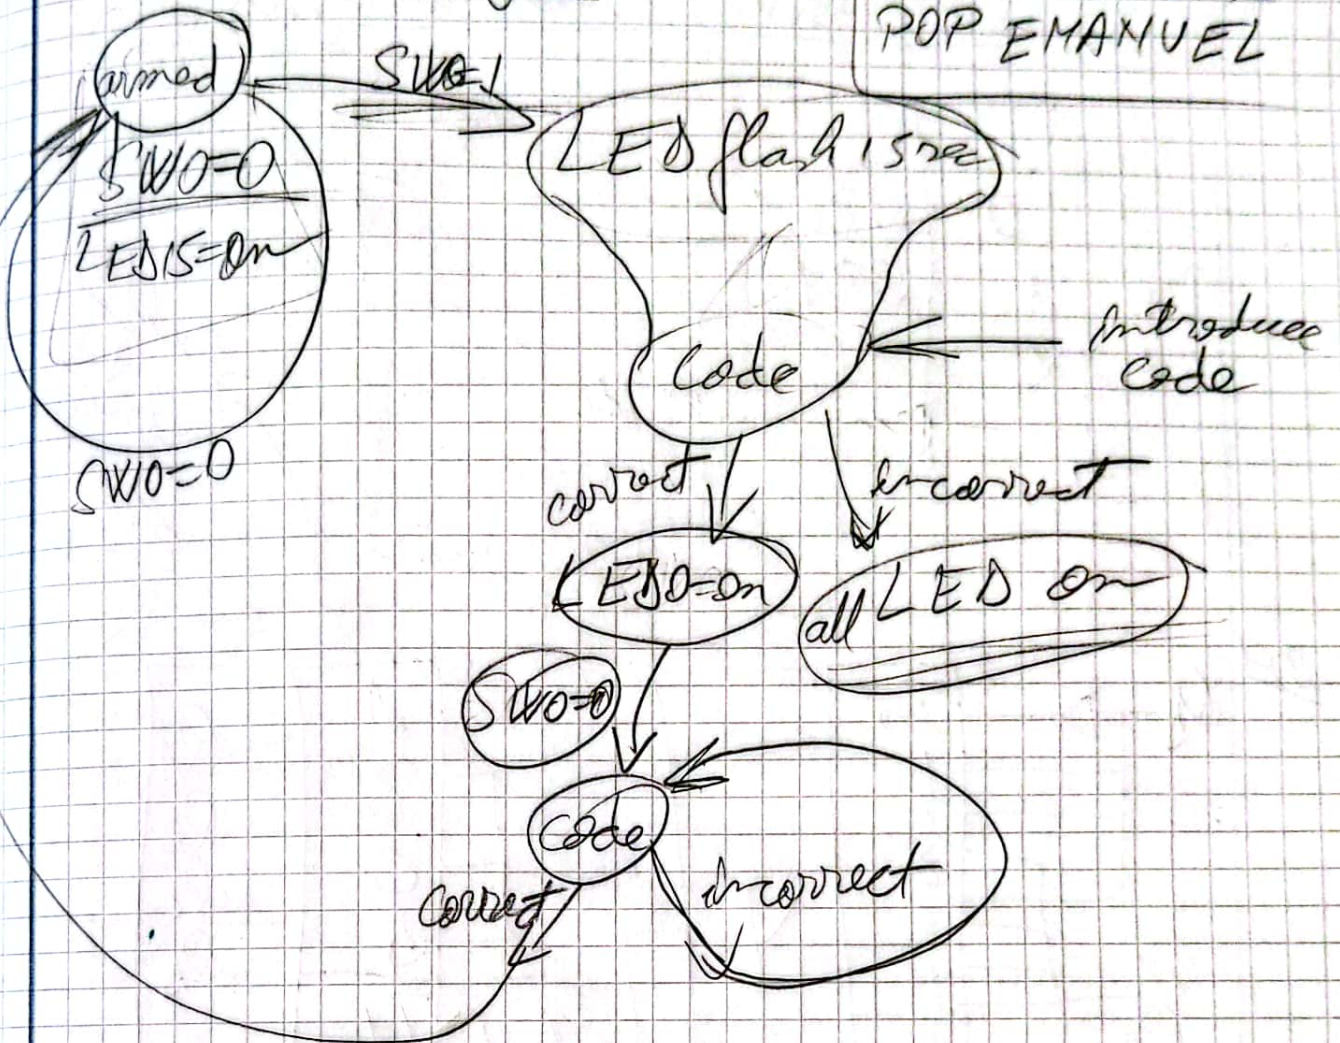 POP EMANUEL
armed
SW0=1
SW0=0
LED15=On
LED flash 15 sec
Code
introduce
code
SW0=0
correct
incorrect
LED0=On
all LED On
SW0=0
code
correct
incorrect